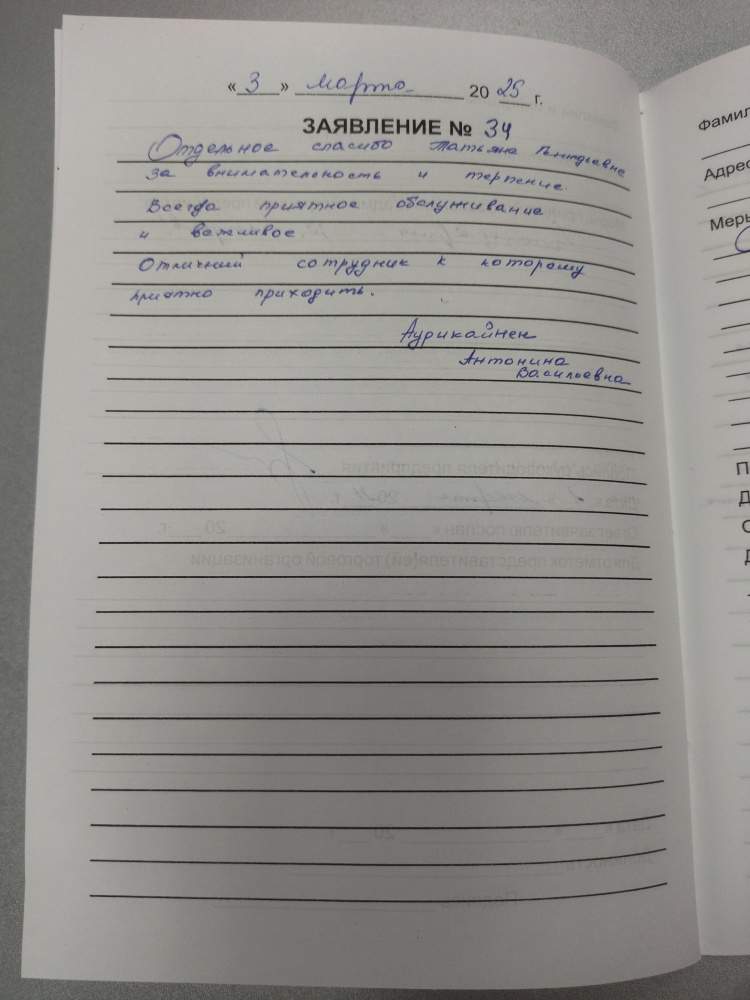 « 3 » марта 20 25 г.
ЗАЯВЛЕНИЕ № 34
Отдельное спасибо Татьяне
за внимательность и терпение.
Всегда приятное обслуживание
и важливое
Отличный сотрудник к которому
приятно приходить.
Аурикайнен
Антонина
Васильевна
Фамил
Адрес
Меры